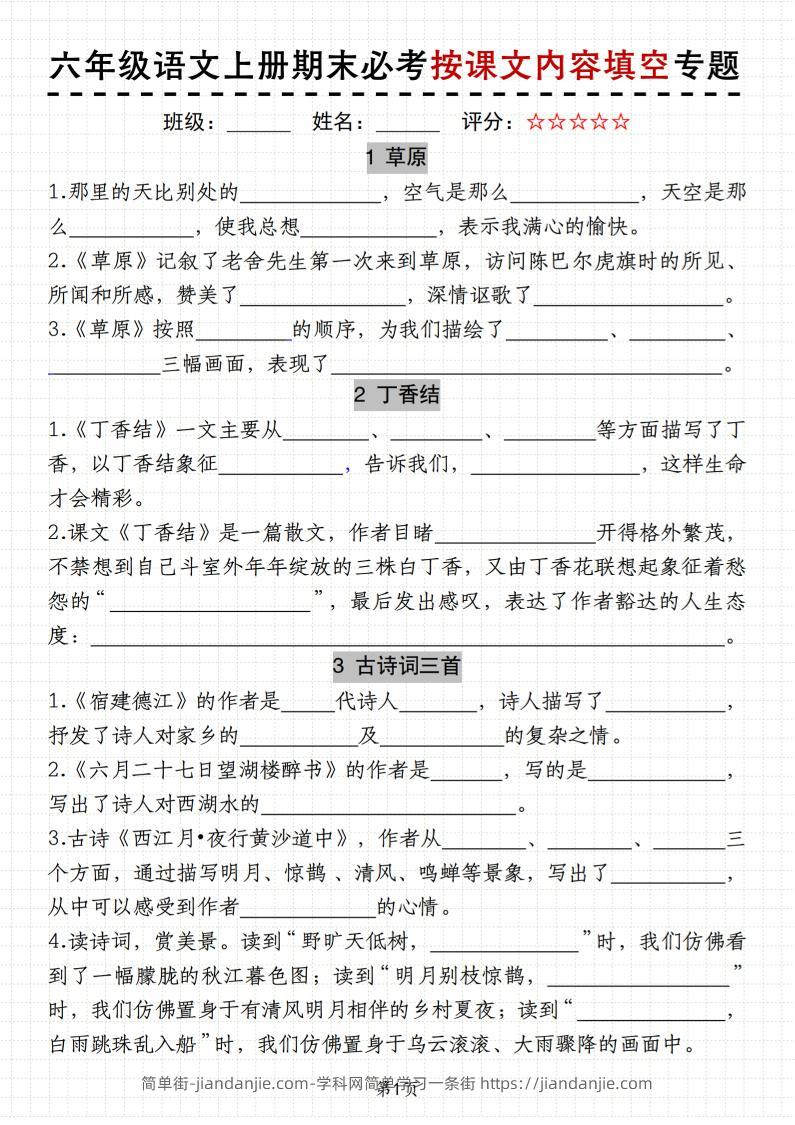 六年级语文上册期末必考按课文内容填空专题
班级：______ 姓名：______ 评分：☆☆☆☆☆
1 草原
1.那里的天比别处的______________，空气是那么_____________，天空是那
么_____________，使我总想______________，表示我满心的愉快。
2.《草原》记叙了老舍先生第一次来到草原，访问陈巴尔虎旗时的所见、
所闻和所感，赞美了_________________，深情讴歌了___________________。
3.《草原》按照__________的顺序，为我们描绘了__________、__________、
___________三幅画面，表现了________________________________________。
2 丁香结
1.《丁香结》一文主要从_________、_________、_________等方面描写了丁
香，以丁香结象征_____________，告诉我们，_________________，这样生命
才会精彩。
2.课文《丁香结》是一篇散文，作者目睹________________开得格外繁茂，
不禁想到自己斗室外年年绽放的三株白丁香，又由丁香花联想起象征着愁
怨的“____________________”，最后发出感叹，表达了作者豁达的人生态
度：________________________________________________________________。
3 古诗词三首
1.《宿建德江》的作者是_____代诗人________，诗人描写了____________，
抒发了诗人对家乡的____________及____________的复杂之情。
2.《六月二十七日望湖楼醉书》的作者是_______，写的是______________，
写出了诗人对西湖水的__________________________。
3.古诗《西江月•夜行黄沙道中》，作者从________、________、_______三
个方面，通过描写明月、惊鹊 、清风、鸣蝉等景象，写出了____________，
从中可以感受到作者______________的心情。
4.读诗词，赏美景。读到“野旷天低树，_______________”时，我们仿佛看
到了一幅朦胧的秋江暮色图；读到“明月别枝惊鹊，__________________”
时，我们仿佛置身于有清风明月相伴的乡村夏夜；读到“_______________，
白雨跳珠乱入船”时，我们仿佛置身于乌云滚滚、大雨骤降的画面中。
简单街-jiandanjie.com-学科网简单学习一条街 https://jiandanjie.com
第1页